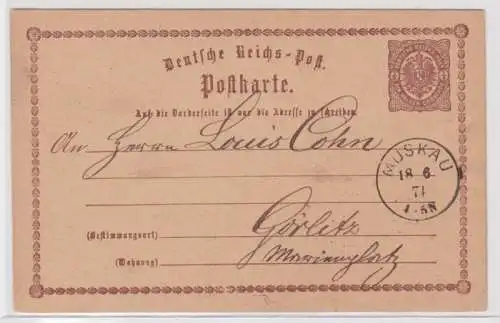 Deutsche Reichs-Post.
Postkarte.
Auf die Vorderseite ist nur die Adresse zu schreiben.
An Herrn Louis Cohn
MUSKAU
18 6
71
4-5N
Görlitz
(Bestimmungsort)
Marienplatz
(Wohnung)